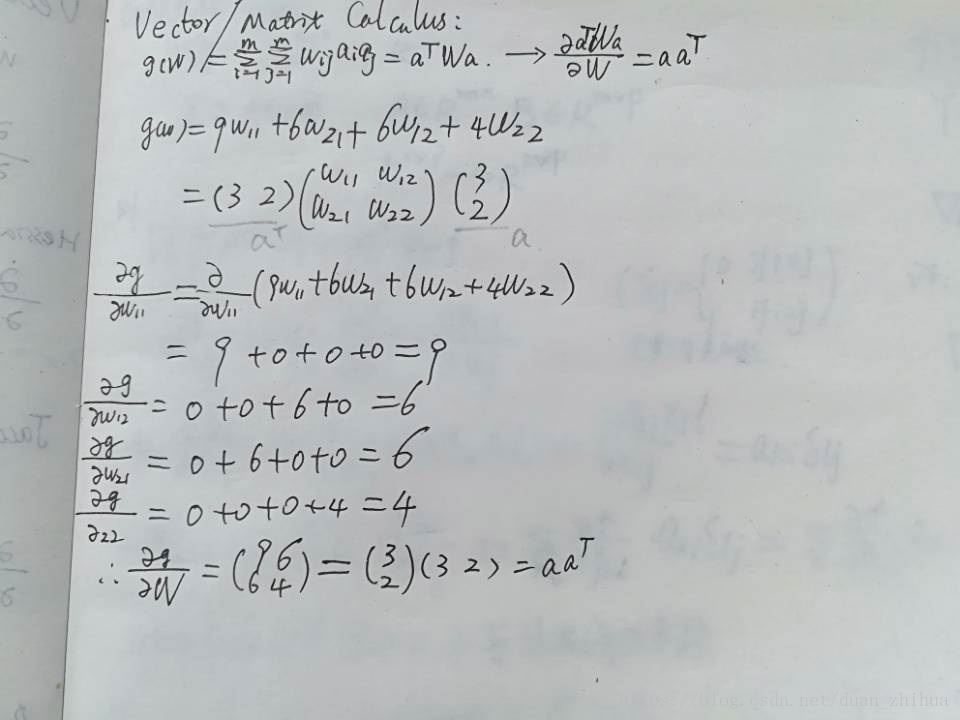 Vector/Matrix Calculus:
g(W) = ∑_{i=1}^{m} ∑_{j=1}^{m} w_{ij} a_i a_j = a^T W a. → ∂a^T W a / ∂W = a a^T
g(w) = 9w_{11} + 6w_{21} + 6w_{12} + 4w_{22}
= (3 2) (w_{11} w_{12} ; w_{21} w_{22}) (3 ; 2)
a^T a
∂g/∂w_{11} = ∂/∂w_{11} (9w_{11} + 6w_{21} + 6w_{12} + 4w_{22})
= 9 + 0 + 0 + 0 = 9
∂g/∂w_{12} = 0 + 0 + 6 + 0 = 6
∂g/∂w_{21} = 0 + 6 + 0 + 0 = 6
∂g/∂_{22} = 0 + 0 + 0 + 4 = 4
∴ ∂g/∂W = (9 6 ; 6 4) = (3 ; 2) (3 2) = a a^T
Hessia
Jaco
https://blog.csdn.net/duan_zhihua